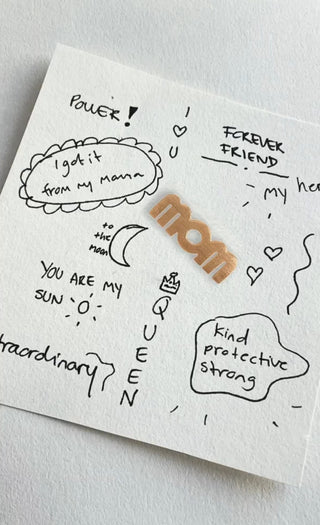 POWER!
I
♡
U
FOREVER
FRIEND
I got it
from my Mama
my
mom
to
the
moon
YOU ARE MY
SUN
QUEEN
kind
protective
strong
traordinary